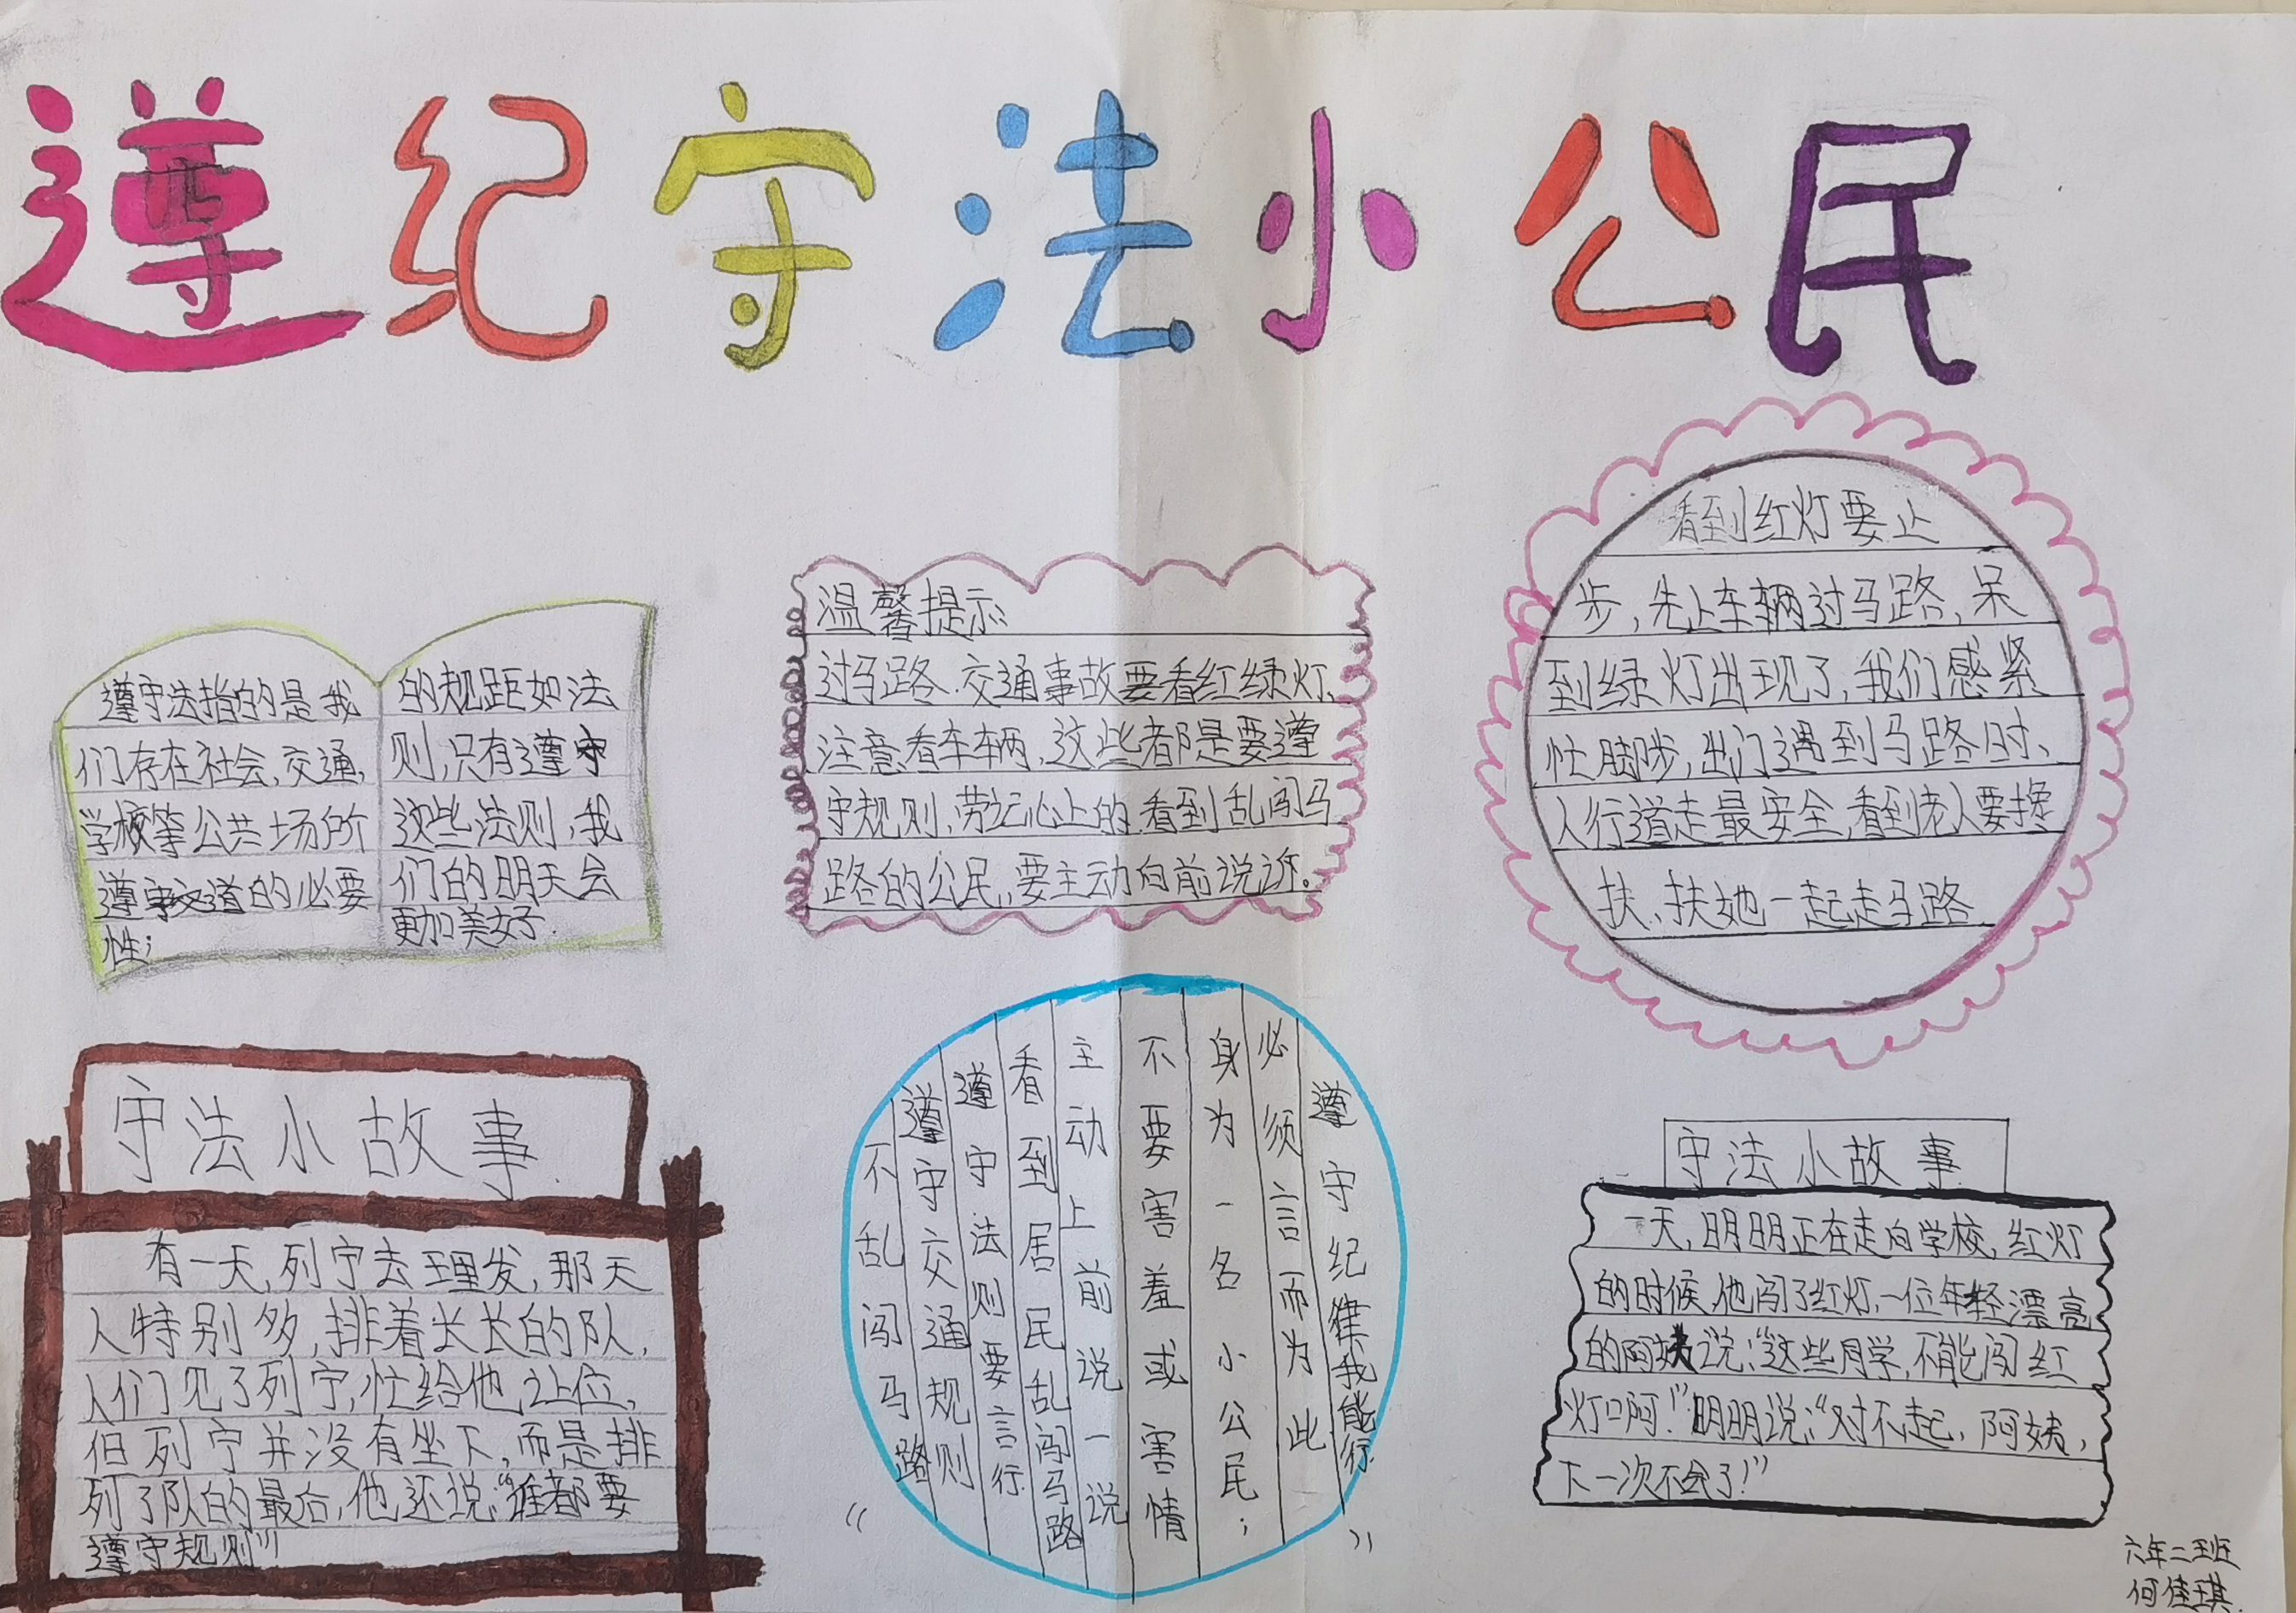 遵纪守法小公民
遵守法指的是我
们存在社会,交通,
学校等公共场所
遵守交道的必要
性;
的规距如法
则,只有遵守
这些法则,我
们的明天会
更加美好.
温馨提示:
过马路.交通事故要看红绿灯、
注意看车辆,这些都是要遵
守规则,劳记心上的.看到乱闯马
路的公民,要主动向前说诉。
看到红灯要止
步,先让车辆过马路,呆
到绿灯出现了,我们感紧
忙脚步,出门遇到马路时、
人行道走最安全,看到老人要搀
扶、扶她一起走马路
守法小故事.
有一天,列宁去理发,那天
人特别多,排着长长的队,
人们见了列宁,忙给他让位,
但列宁并没有坐下,而是排
列了队的最后,他还说:“谁都要
遵守规则”!
遵守纪律我能行
必须言而为此
身为一名小公民;
不要害羞或害情
主动上前说一说
看到居民乱闯马路
遵守法则要言行
遵守交通规则
不乱闯马路
守法小故事
一天,明明正在走向学校,红灯
的时候,他闯了红灯,一位年轻漂亮
的阿姨说:“这些同学,不能闯红
灯口阿!”明明说:“对不起,阿姨,
下一次不会了!”
六年二班
何佳琪